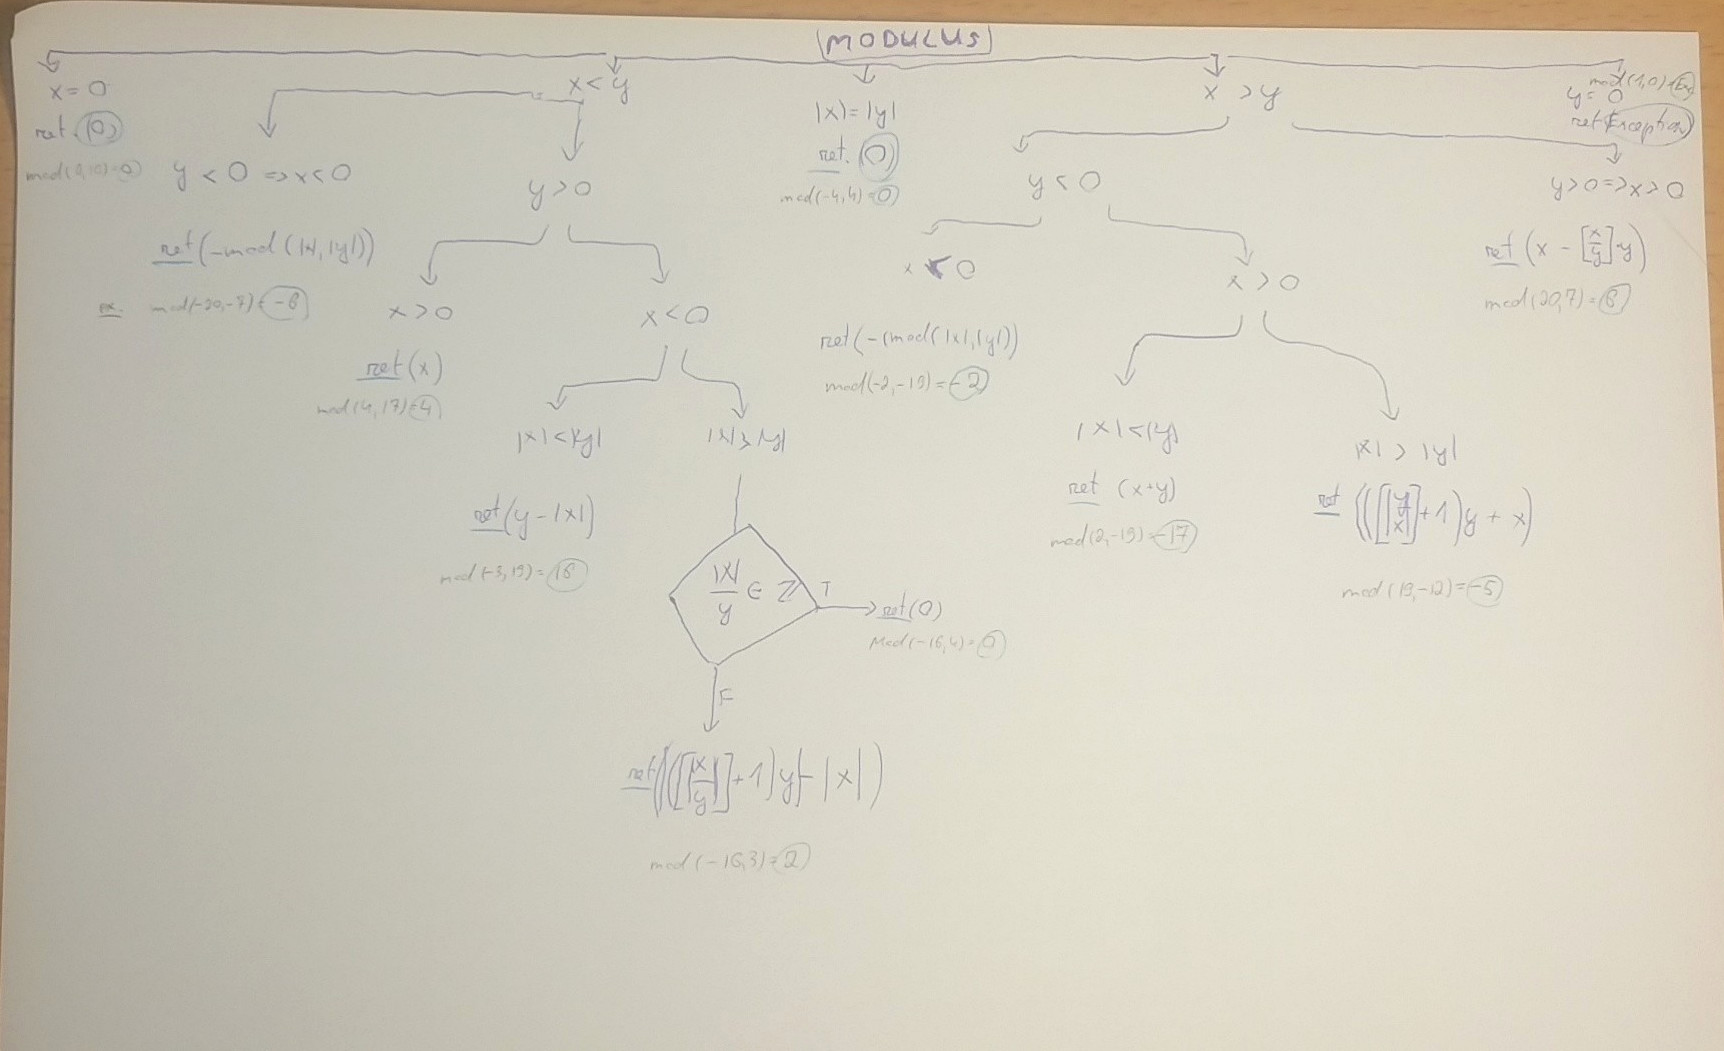 MODULUS
x = 0
ret. (0)
mod(0,10)=0
x < y
y < 0 => x < 0
ret(-mod(|x|,|y|))
ex. mod(-20,-7)=-6
y > 0
x > 0
ret(x)
mod(4,17)=4
x < 0
|x| < |y|
ret(y - |x|)
mod(-3,19)=16
|x| > |y|
|x|/y ∈ Z
T
ret(0)
Mod(-16,4)=0
F
ret((([|x/y|]+1)y) - |x|)
mod(-16,3)=2
|x| = |y|
ret. (0)
mod(-4,4)=0
x > y
y < 0
x < 0
ret(-(mod(|x|,|y|))
mod(-2,-19)=-2
x > 0
|x| < |y|
ret (x+y)
mod(2,-19)=-17
|x| > |y|
ret (([|y/x|]+1)y + x)
mod(19,-12)=-5
y > 0 => x > 0
ret (x - [x/y]·y)
mod(20,7)=6
mod(1,0)=Ex
y = 0
ret(Exception)